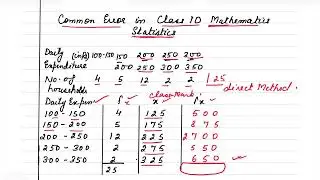 Common Error in Class 10 Mathematics
Statistics
Daily (in ₹) 100-150 150 200 250 300
Expenditure 200 250 300 350
No. of 4 5 12 2 2 25
households Direct Method
Class Mark
Daily Expen f x fx
100-150 4 125 500
150-200 5 175 875
200-250 12 225 2700
250-300 2 275 550
300-350 2 325 650
25